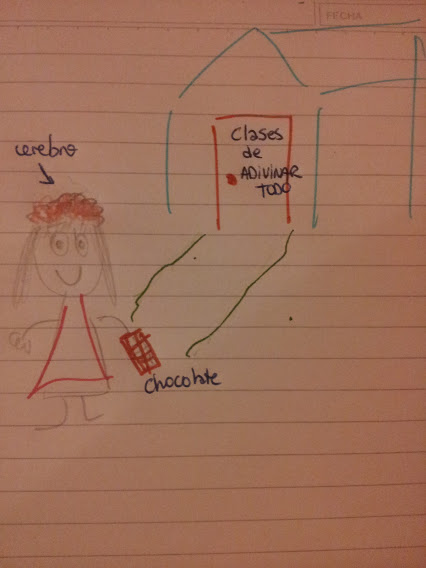 FECHA
clases
de
ADIVINAR
TODO
cerebro
chocolate